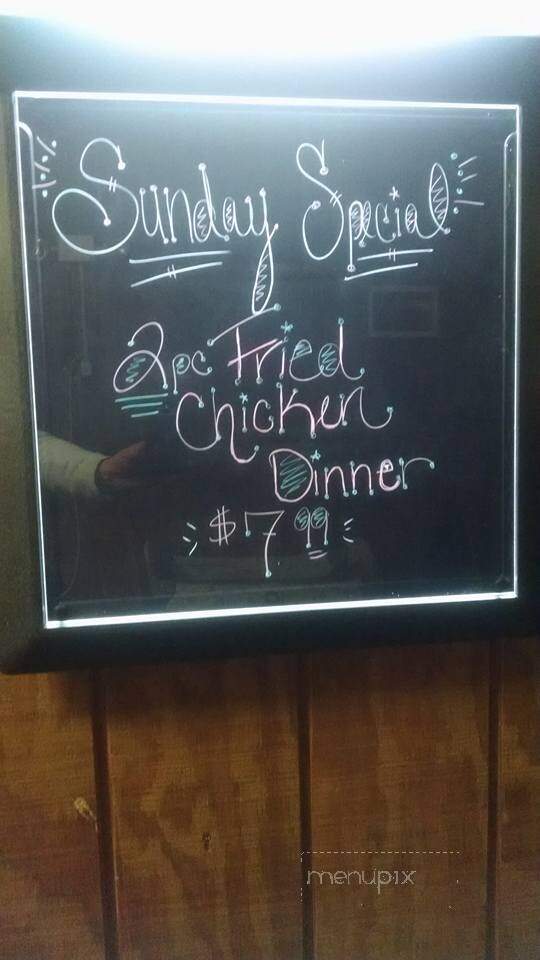 Sunday Special
2pc Fried
Chicken
Dinner
$7.99
menupix